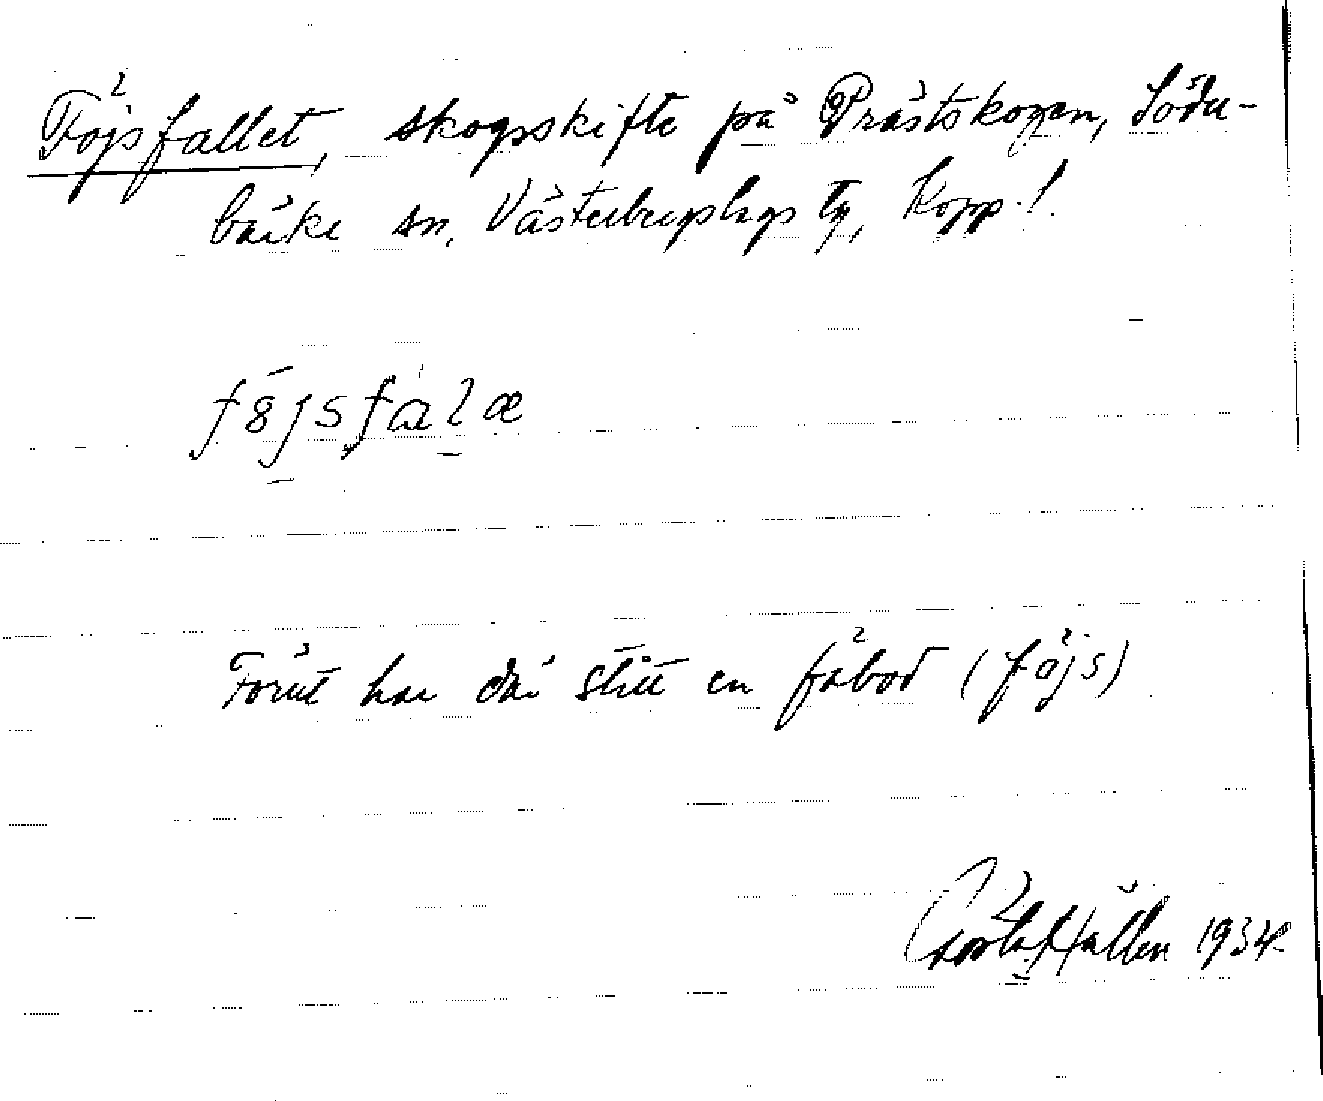 Fåjsfallet, skogsskifte på Prästskogen, Söder-
bärke sn, Västerbergslags tg, Kopp. l.
Förut har där stått en fäbod (fåjs)
Gösta Hallén 1934